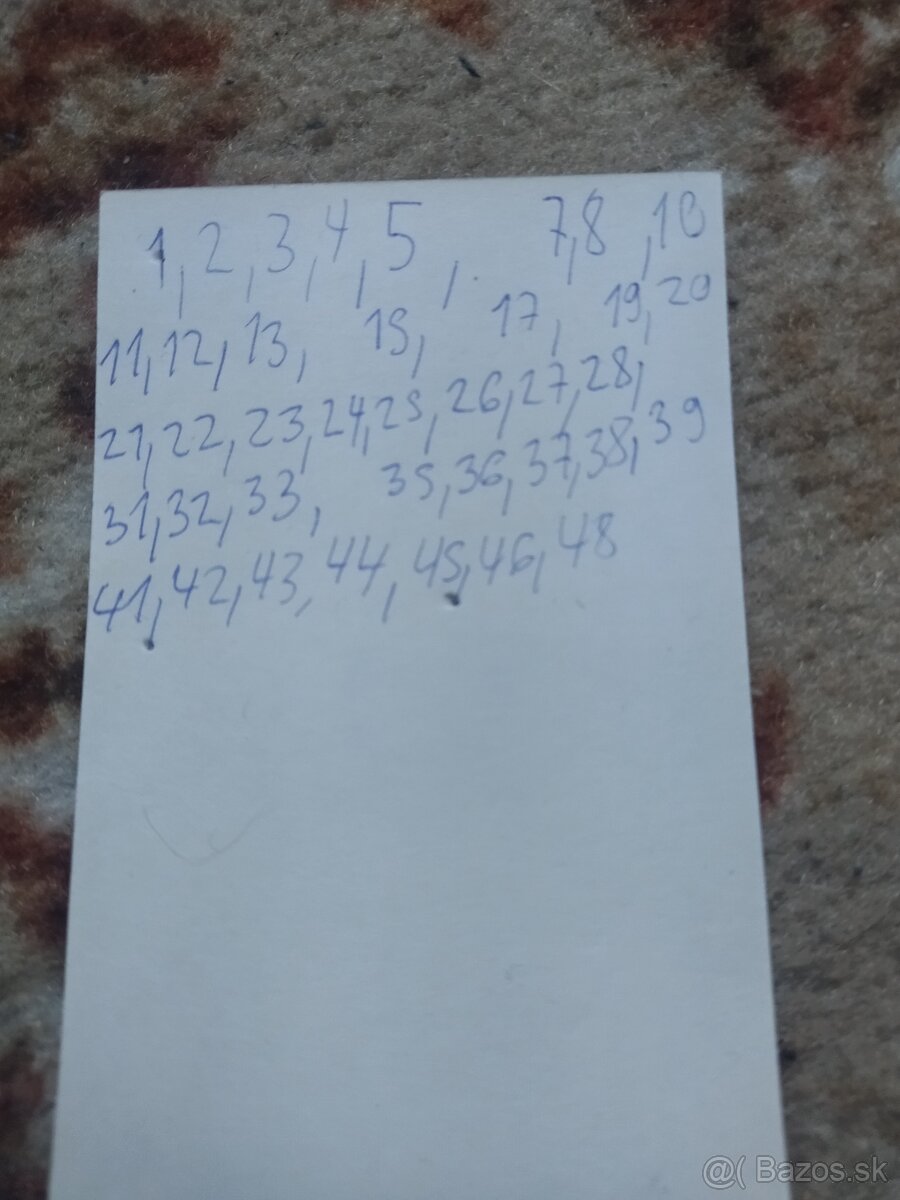 1, 2, 3, 4, 5, . 7, 8, 10
11, 12, 13, 15, 17, 19, 20
21, 22, 23, 24, 25, 26, 27, 28,
31, 32, 33, 35, 36, 37, 38, 39
41, 42, 43, 44, 45, 46, 48
@( Bazos.sk